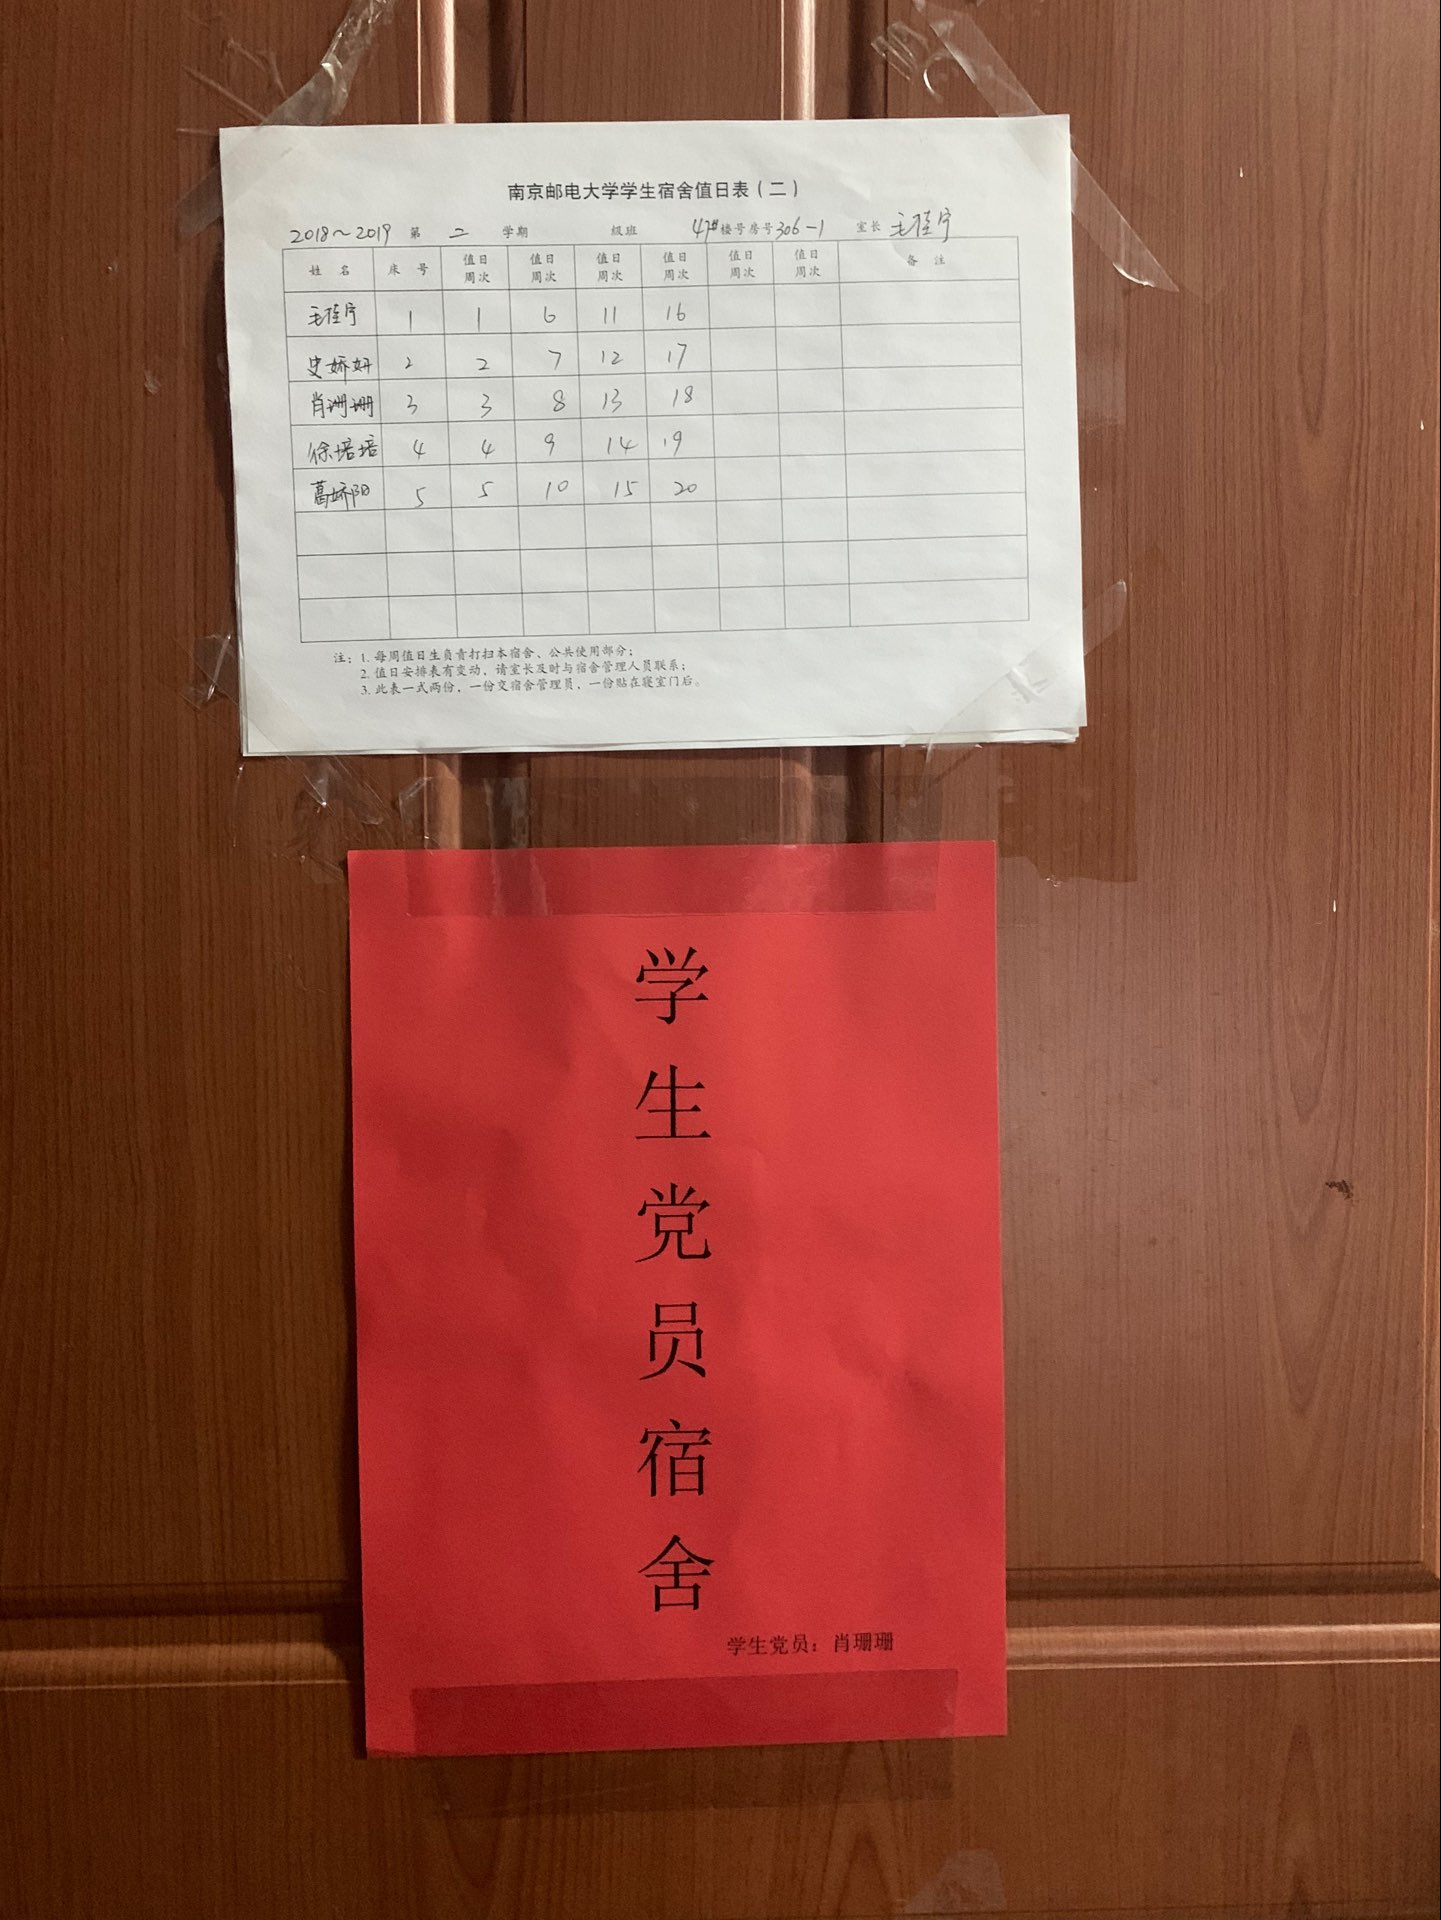 南京邮电大学学生宿舍值日表（二）
2018～2019 第 二 学期 级班 47#楼号房号306-1 室长 毛桂宇
姓 名 床 号 值日周次 值日周次 值日周次 值日周次 值日周次 值日周次 备 注
毛桂宇 1 1 6 11 16
史娇妍 2 2 7 12 17
肖珊珊 3 3 8 13 18
徐培培 4 4 9 14 19
葛娇阳 5 5 10 15 20
注：1. 每周值日生负责打扫本宿舍、公共使用部分；
2. 值日安排表有变动，请室长及时与宿舍管理人员联系；
3. 此表一式两份，一份交宿舍管理员，一份贴在寝室门后。
学生党员宿舍
学生党员：肖珊珊